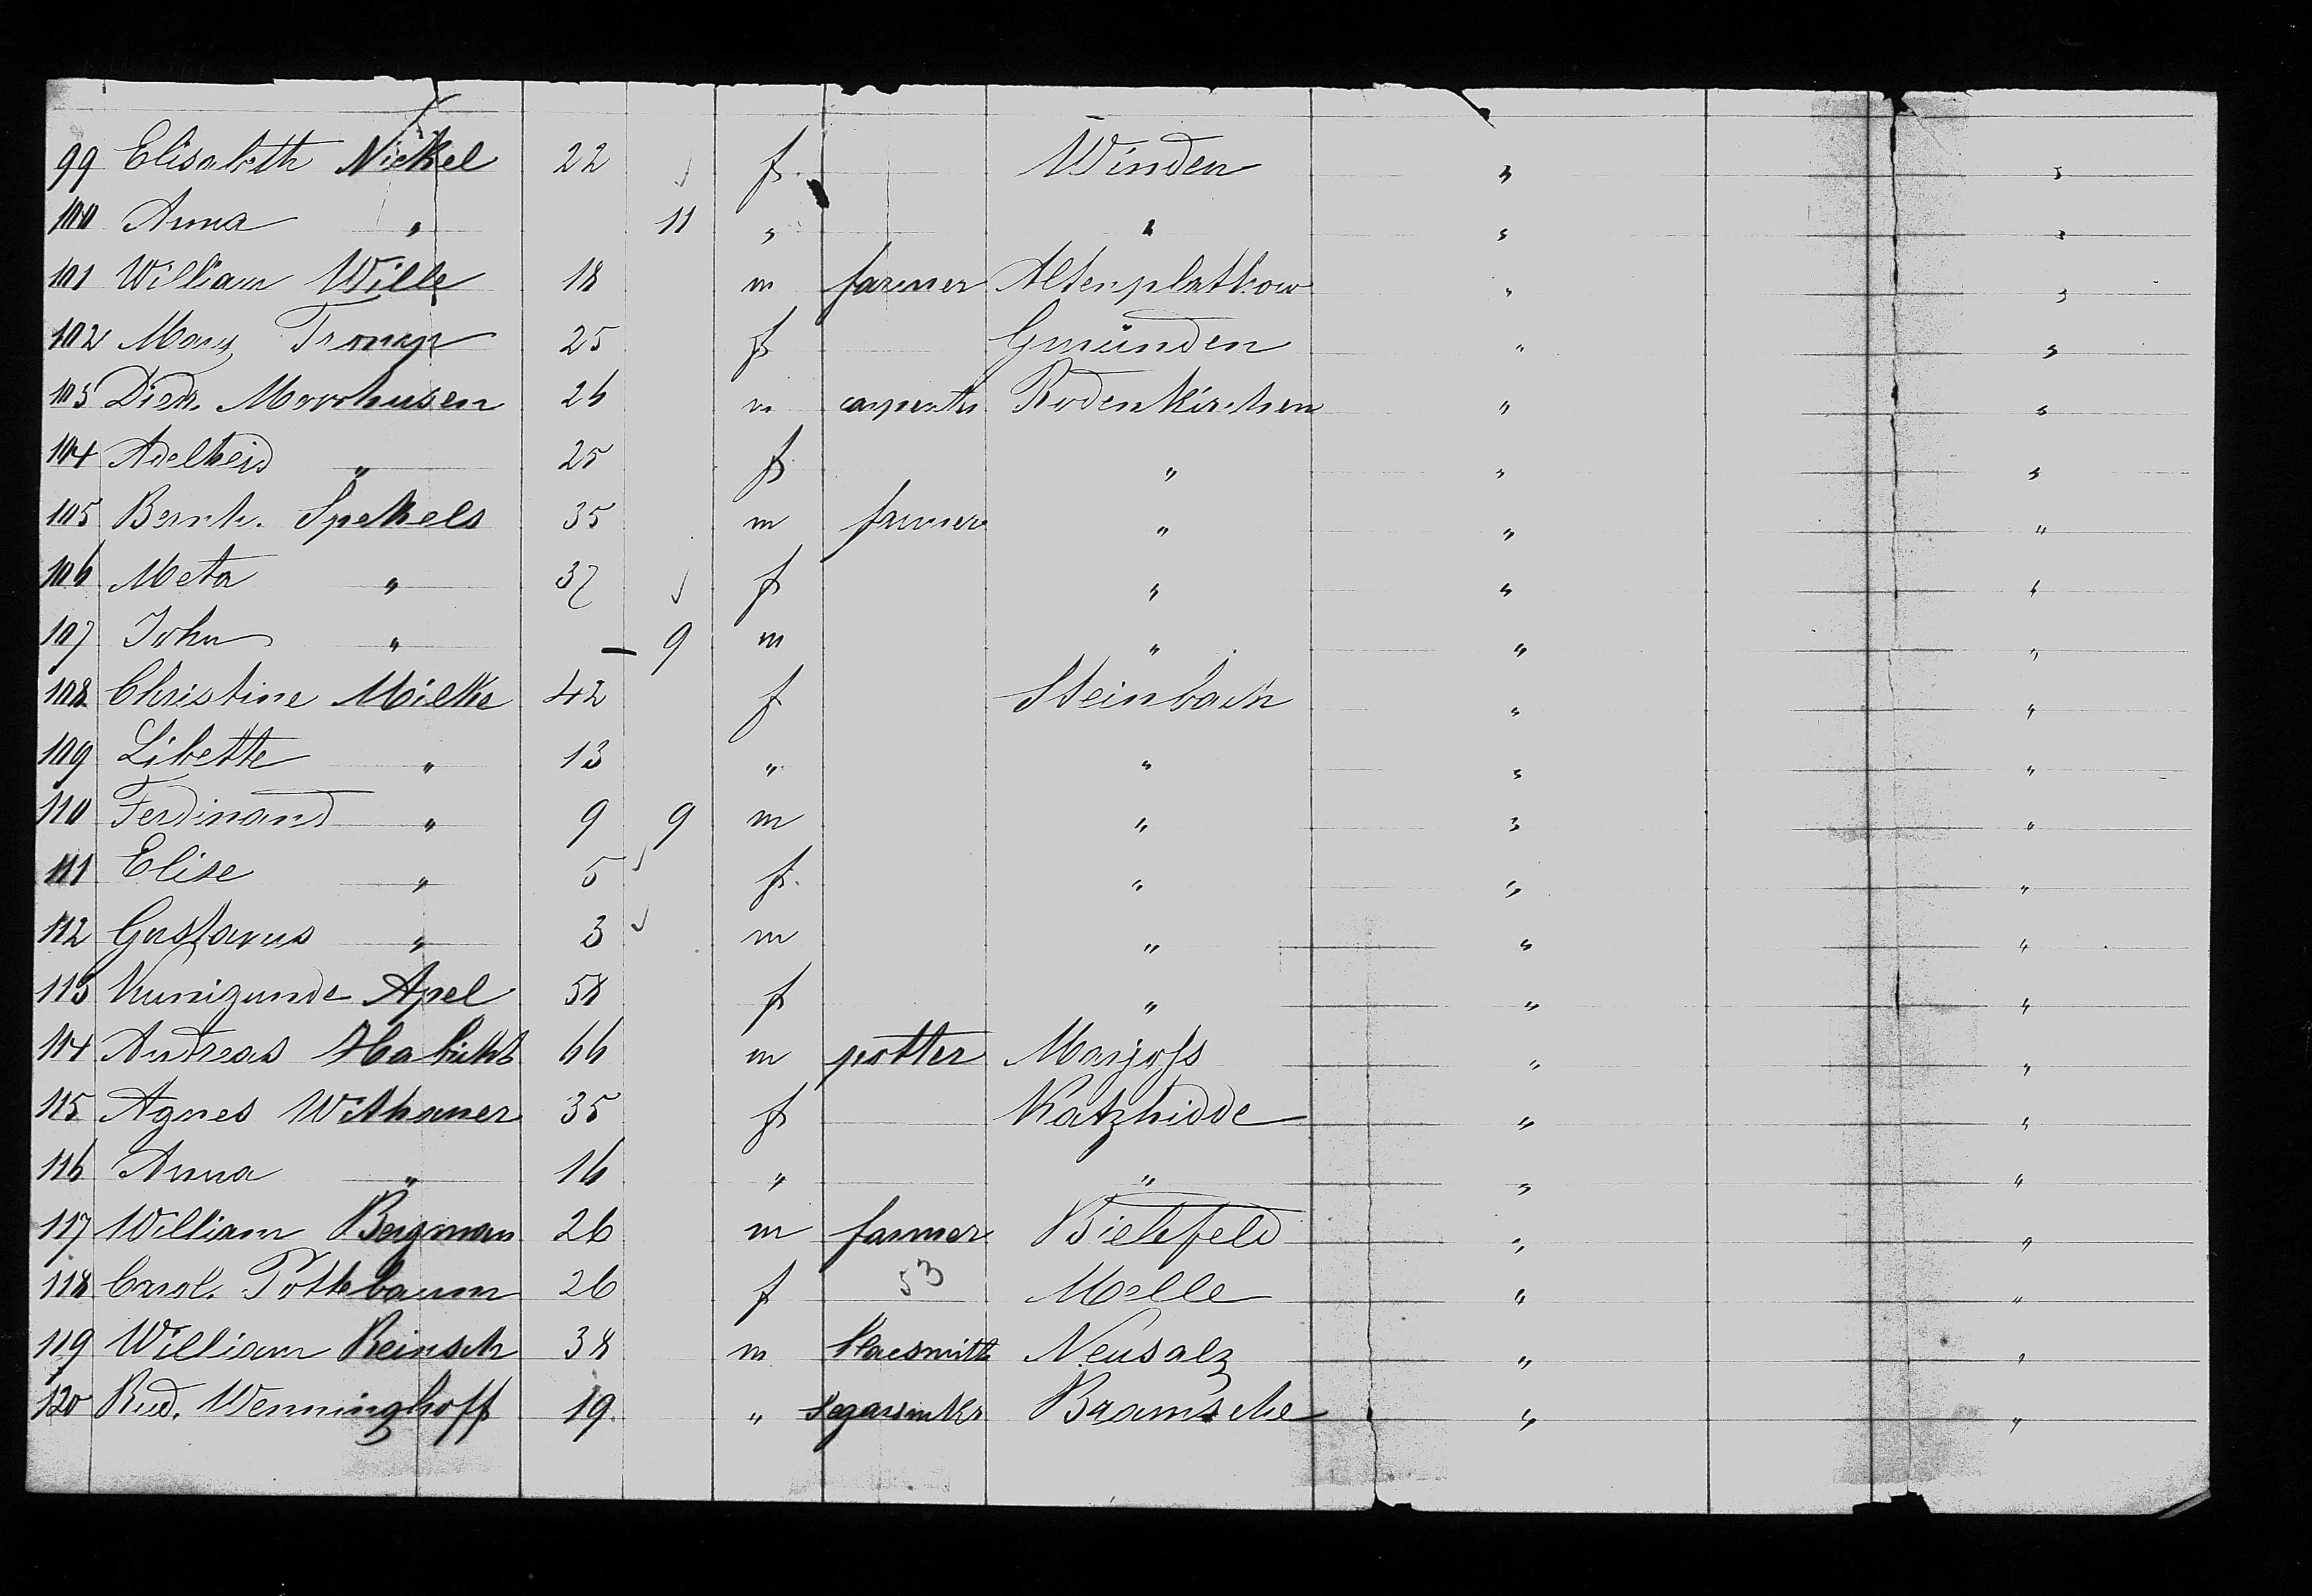 99 Elisabeth Nickel 22 f. Winden " "
100 Anna " 11 " " " "
101 William Wille 18 m farmer Altenplathow " "
102 Mary 25 f Gmünden " "
103 Died. Moorhusen 26 m carpenter Rodenkirchen " "
104 Adelheid " 25 f " " "
105 Bernh. Spekels 35 m farmer " " "
106 Meta " 37 f " " "
107 John " — 9 m " " "
108 Christine Milke 42 f Steinbach " "
109 Libette " 13 " " " "
110 Ferdinand " 9 9 m " " "
111 Elise " 5 f. " " "
112 Gustavus " 3 m " " "
113 Kunigunde Apel 58 f " " "
114 Andreas Habicht 66 m potter Marjoss " "
115 Agnes 35 f Katzhidde " "
116 Anna " 16 " " " "
117 William Bergman 26 m farmer Bielefeld " "
118 Carol. Pottebaum 26 f 53 Melle " "
119 William Reinsch 38 m Neusalz " "
120 Rud. Wenninghoff 19 " Segarmkr Bramsche " "